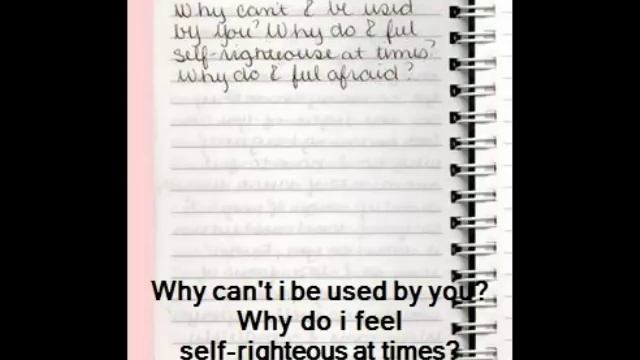 Why can't I be used
by you? Why do I ful
self-righteouse at times?
Why do I ful afraid?
Why can't i be used by you?
Why do i feel
self-righteous at times?